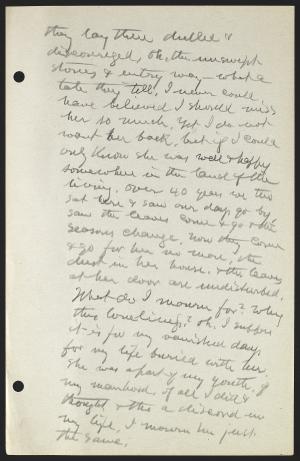 they lay there dulled &
discouraged, Oh, the unswept
stones & entry way – what a
tale they tell. I never could
have believed I should miss
her so much. Yet I do not
want her back, but if I could
only know she was well & happy
somewhere in the land of the
living. Over 40 years we two
sat here & saw our days go by –
saw the leaves come & go & the
seasons change. Now they come
& go for her no more, the
dust in her house & the leaves
at her door are undisturbed.
What do I mourn for? Why
this loneliness? Oh, I suppose
it is for my vanished days
for my life buried with her.
She was a part of my youth, of
my manhood, of all I did &
thought & tho a discord in
my life, I mourn her just
the same.